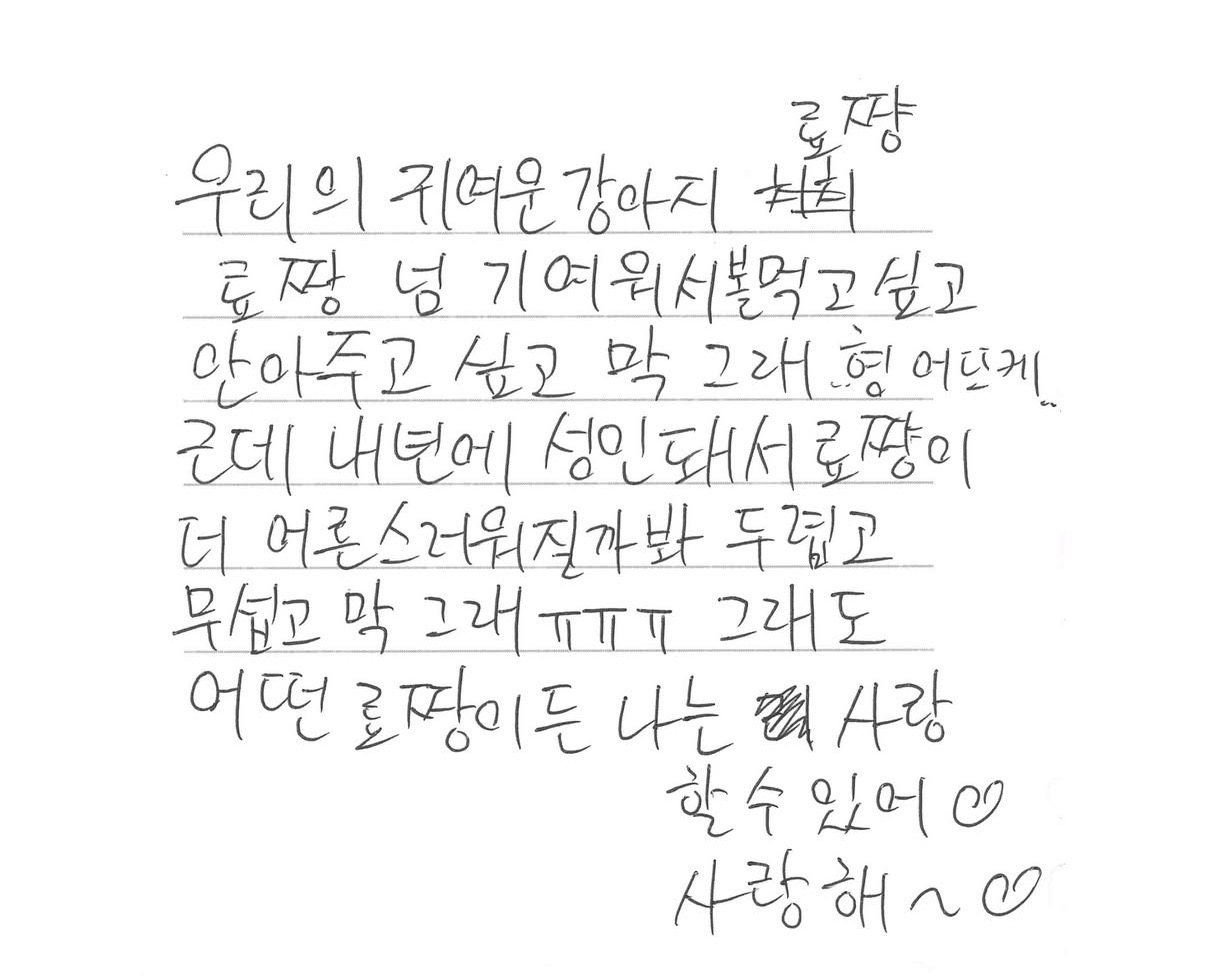 료쨩
우리의 귀여운 강아지
료짱 넘 기여워서 볼먹고싶고
안아주고 싶고 막 그래..형 어뜨케..
근데 내년에 성인돼서 료쨩이
더 어른스러워질까봐 두렵고
무섭고 막 그래 ㅠㅠㅠ 그래도
어떤 료짱이든 나는 사랑
할 수 있어 ♡
사랑해 ~ ♡